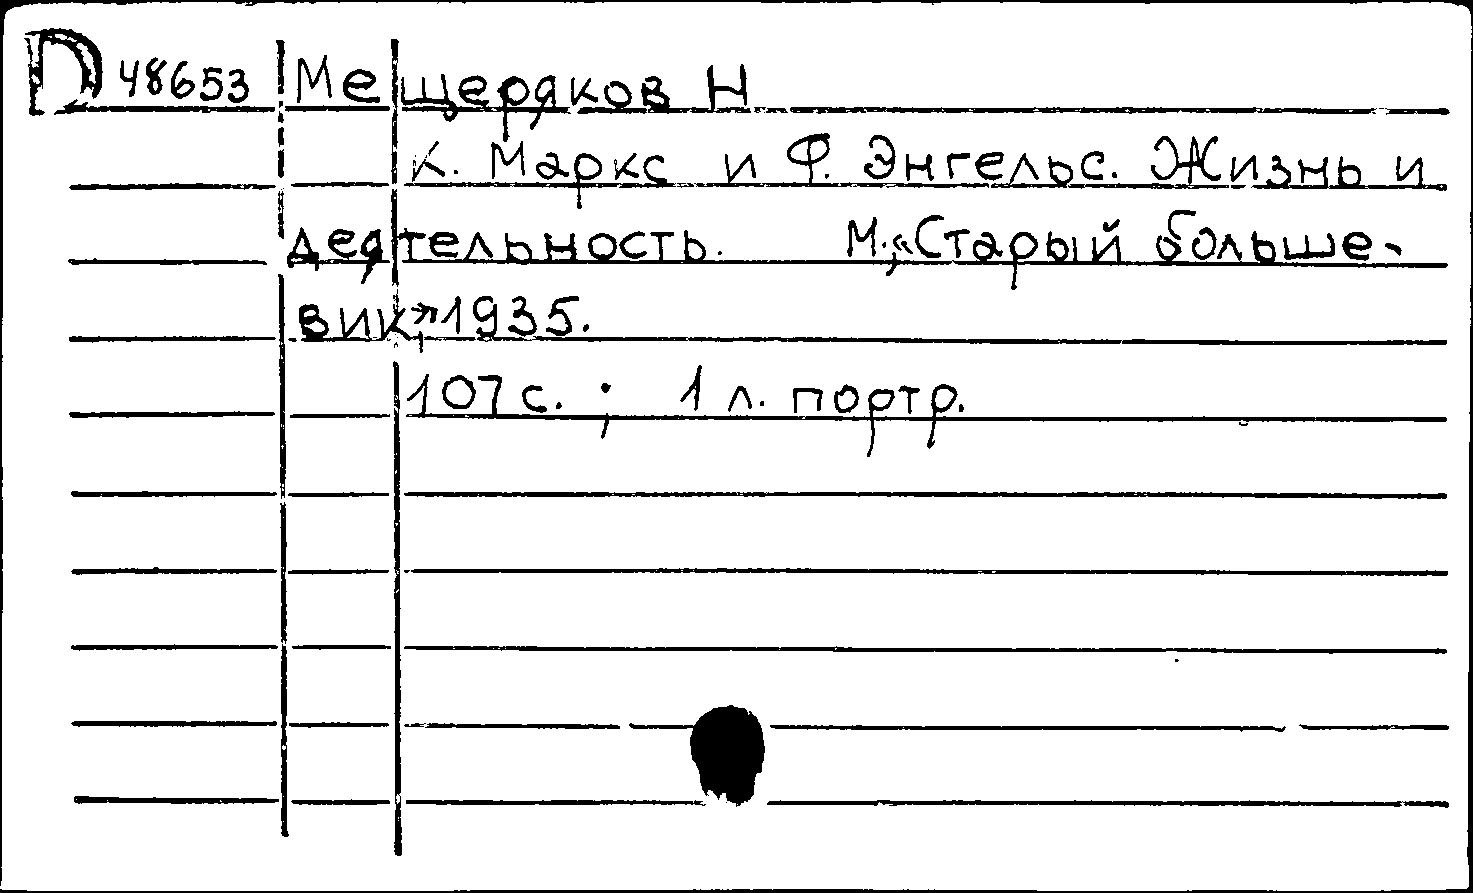 D 48653 Мещеряков Н
К. Маркс и Ф. Энгельс. Жизнь и
деятельность. М., «Старый больше-
вик», 1935.
107 с. ; 1 л. портр.